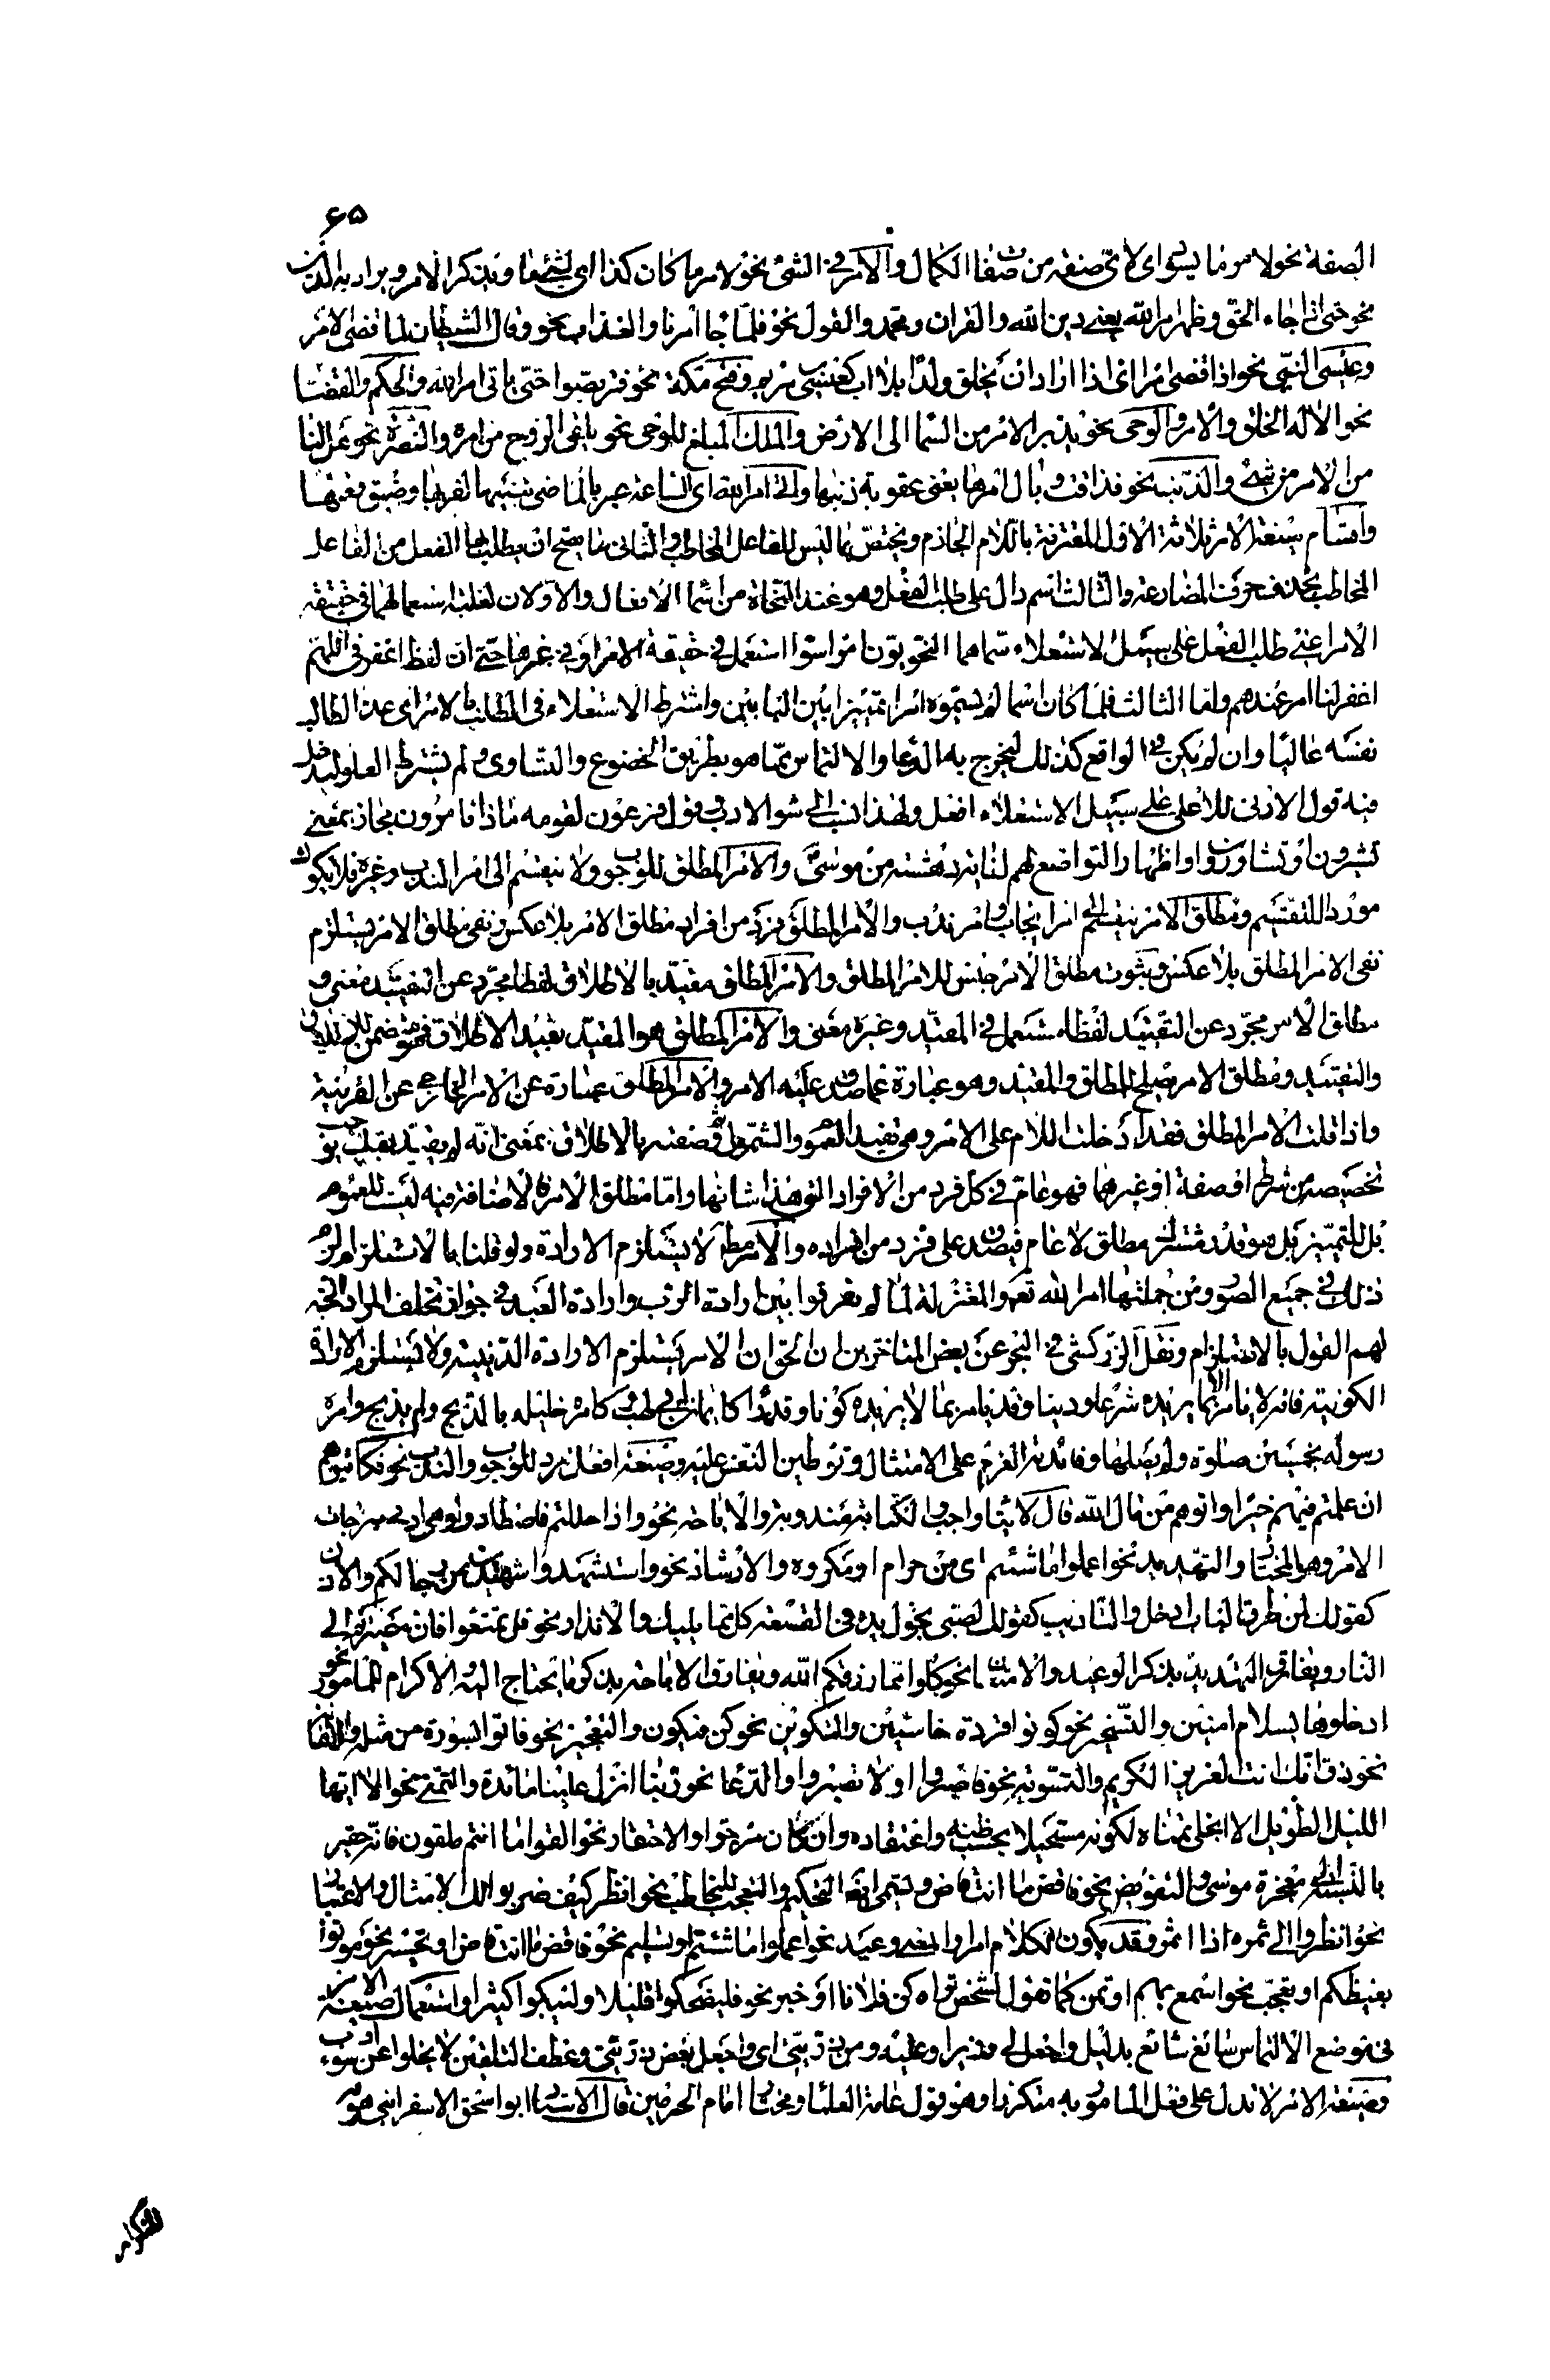 ۶۵
الصفة نحو لامر ما يسود اى لاى صفة من صفات الكمال والامر فى الشئ نحو لامر ما كان كذا اى لشئ ما ويذكر الامر ويراد به الدين
نحو حتى اذا جاء الحق وظهر امر الله يعنى دين الله والقران ومحمد والقول نحو فلما جا امرنا والعذاب نحو وقال الشيطان لما قضى الامر
وعيسى النبى نحو اذا قضى امرا اى اذا اراد ان يخلق ولدا بلا اب كعيسى بن مريم وفتح مكة نحو فتربصوا حتى ياتى امر الله والحكم والقضا
نحو الا له الخلق والامر والوحى نحو يدبر الامر من السما الى الارض والملك المبلغ للوحى نحو يلقى الروح من امره والنصرة نحو هل لنا
من الامر من شئ والذنب نحو فذاقت وبال امرها يعنى عقوبة ذنبها واتى امر الله اى الساعة عبر بالماضى تنبيها لقربها وضيق وقتها
واقسام صيغة الامر ثلاثة الاول المقترنة باللام الجازم ويختص بما ليس للفاعل المخاطب والثانى ما يصح ان يطلب بها الفعل من الفاعل
المخاطب بحذف حرف المضارعة والثالث اسم دال على طلب الفعل وهو عند النحاة من اسما الافعال والاولان لغلبة استعمالهما فى حقيقة
الامر اعنى طلب الفعل على سبيل الاستعلاء سماهما النحويون امرا سوا استعمل فى حقيقة الامر او فى غيرها حتى ان لفظ اغفر فى اللهم
اغفر لنا امر عندهم واما الثالث فلما كان اسما لم يسموه امرا تمييزا بين البابين واشترط الاستعلاء فى الطلب بالامر اى عد الطالب
نفسه عاليا وان لم يكن فى الواقع كذلك ليخرج به الدعا والالتماس مما هو بطريق الخضوع والتساوى ولم يشترط العلو ليدخل
فيه قول الادنى للاعلى على سبيل الاستعلاء افعل ولهذا نسب الى سو الادب وقول فرعون لقومه ماذا تامرون مجاز بمعنى
تشيرون او تشاورون او اظهار التواضع لهم لغاية دهشته من موسى والامر المطلق للوجوب ولا ينقسم الى امر الندب وغيره فلا يكون
موردا للتقسيم ومطلق الامر ينقسم الى امر ايجاب وامر ندب والامر المطلق فرد من افراد مطلق الامر بلا عكس ونفى مطلق الامر يستلزم
نفى الامر المطلق بلا عكس وثبوت مطلق الامر جنس للامر المطلق والامر المطلق مقيد بالاطلاق لفظا مجرد عن التقييد معنى و
مطلق الامر مجرد عن التقييد لفظا مستعمل فى المقيد وغيره معنى والامر المطلق هو المقيد بقيد الاطلاق فهو متضمن للاطلاق
والتقييد ومطلق الامر يصلح للمطلق والمقيد وهو عبارة عما صدق عليه الامر والامر المطلق عبارة عن الامر الخارجى عن القرينة
واذا قلت الامر المطلق فقد ادخلت اللام على الامر وهى تفيد العموم والشمول ثم وصفته بالاطلاق بمعنى انه لم يقيد بقيد يوجب
تخصيصه من شرط او صفة او غيرهما فهو عام فى كل فرد من الافراد التى هذا شانها واما مطلق الامر فالاضافة فيه ليست للعموم
بل للتمييز بل هو قدر مشترك مطلق لا عام فيصدق على فرد من افراده والامر مطلقا لا يستلزم الارادة ولو قلنا بالاستلزام لزم
ذلك فى جميع الصور ومن جملتها امر الله تعالى والمعتزلة لما لم يفرقوا بين ارادة الرب وارادة العبد فى جواز تخلف المراد اتجه
لهم القول بالاستلزام ونقل الزركشى فى البحر عن بعض المتاخرين ان الحق ان الامر يستلزم الارادة الدينية ولا يستلزم الارادة
الكونية فانه لا يامر الا بما يريده شرعا ودينا وقد يامر بما لا يريده كونا وقدرا كايمان ابى لهب كامره خليله بالذبح ولم يذبح وامره
رسوله بخمسين صلوة ولم يصلها وفائدته العزم على الامتثال وتوطين النفس عليه وصيغة افعل ترد للوجوب والندب نحو فكاتبوهم
ان علمتم فيهم خيرا واتوهم من مال الله قال الايتا واجب والكتابة مندوبة والاباحة نحو واذا حللتم فاصطادوا وهى ادنى درجات
الامر وهو المختار والتهديد نحو اعملوا ما شئتم اى من حرام او مكروه والارشاد نحو واستشهدوا شهيدين من رجالكم والاذن
كقولك لمن طرق الباب ادخل والتاديب كقولك لصبى يجول يده فى القصعة كل مما يليك والانذار نحو قل تمتعوا فان مصيركم الى
النار ويفارق التهديد بذكر الوعيد والامتنان نحو كلوا مما رزقكم الله ويفارق الاباحة بذكر ما يحتاج اليه والاكرام للمامور نحو
ادخلوها بسلام امنين والتسخير نحو كونوا قردة خاسئين والتكوين نحو كن فيكون والتعجيز نحو فاتوا بسورة من مثله والاهانة
نحو ذق انك انت العزيز الكريم والتسوية نحو فاصبروا او لا تصبروا والدعا نحو ربنا انزل علينا مائدة والتمنى نحو الا ايها
الليل الطويل الا انجلى تمناه لكونه مستحيلا بحسب ظنه واعتقاده وان كان مرجوا والاحتقار نحو القوا ما انتم ملقون فانه حقير
بالنسبة الى معجزة موسى والتفويض نحو فاقض ما انت قاض ويسمى ايضا التحكيم والتعجب للمخاطب نحو انظر كيف ضربوا لك الامثال والاعتبار
نحو انظروا الى ثمره اذا اثمر وقد يكون الكلام امرا والمعنى وعيد نحو اعملوا ما شئتم او تسليم نحو فاقض ما انت قاض او تحسير نحو موتوا
بغيظكم او تعجب نحو اسمع بهم او تمن كما تقول لشخص تراه كن فلانا او خبر نحو فليضحكوا قليلا وليبكوا كثيرا واستعمال صيغة الامر
فى موضع الالتماس سائغ شائع بدليل واجعل لى وزيرا وعليه ومن ذريتى اى واجعل بعض ذريتى وعطف التلقين لا يخلوا عن سوء ادب
وصيغة الامر لا تدل على فعل المامور به متكررا وهو قول عامة العلما ومختار امام الحرمين قال الاستاذ ابو اسحق الاسفراينى هو
للتكرار